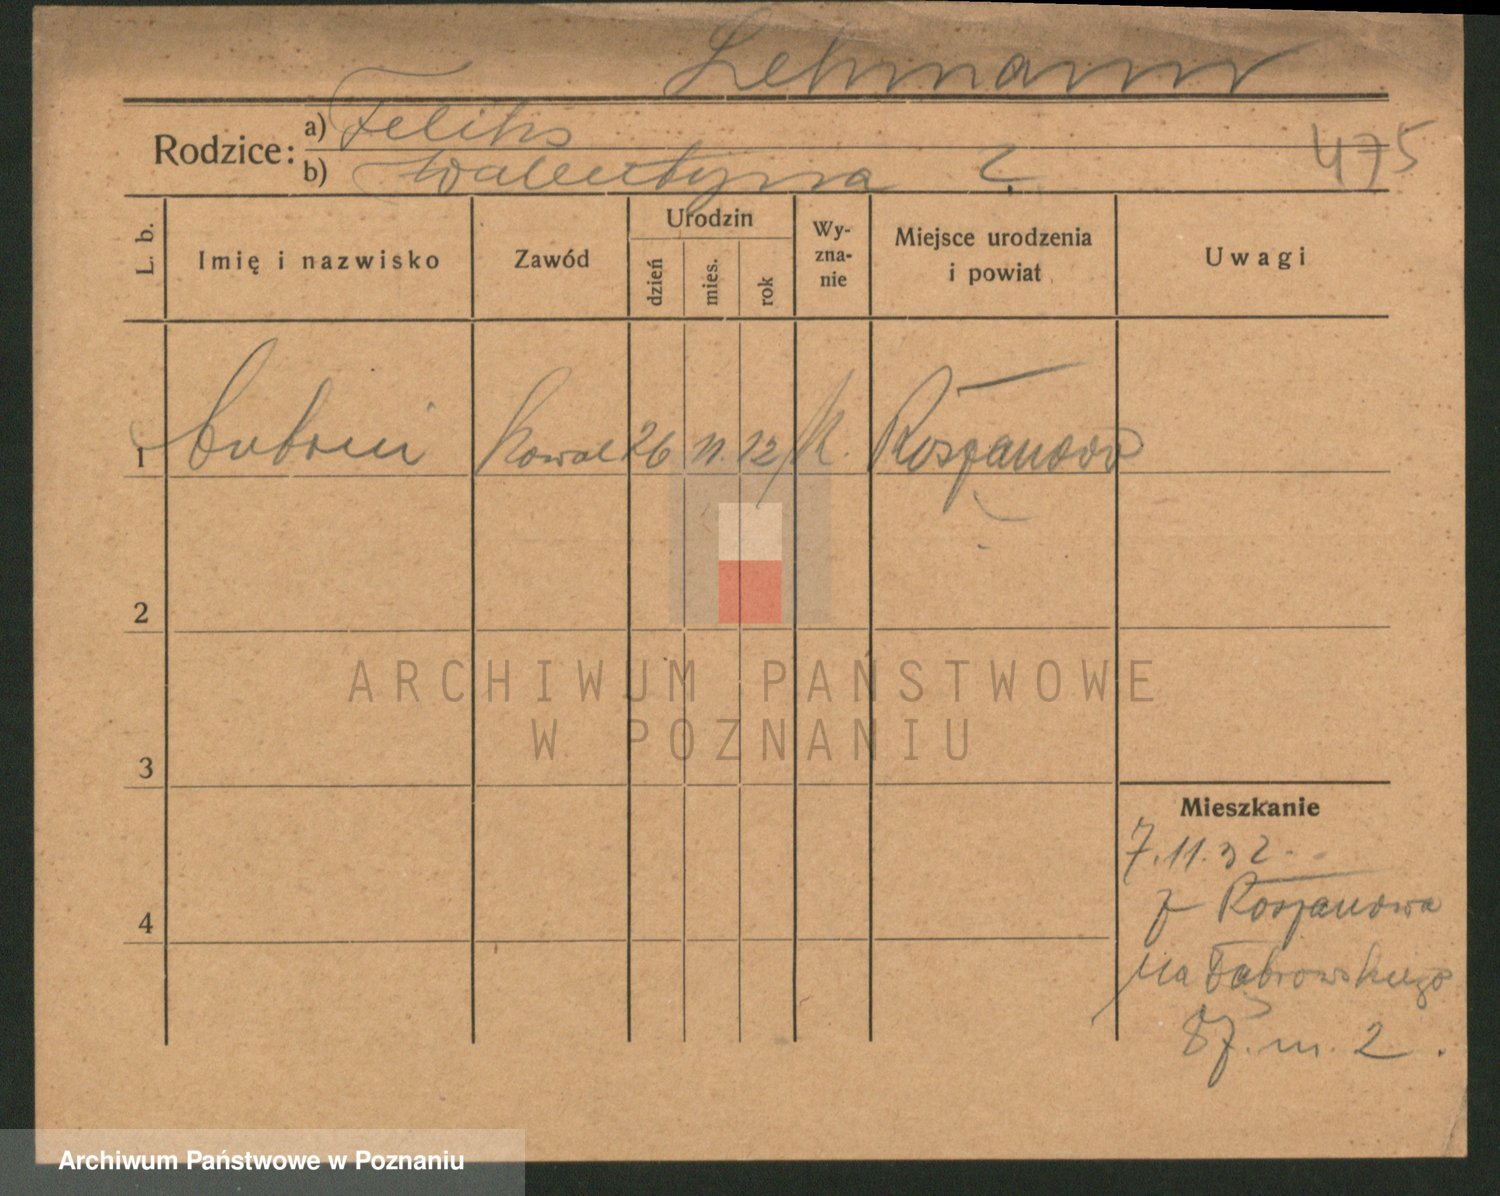 Lehmann
Rodzice: a) Feliks
b) Walentyna ?
475
L. b.
Imię i nazwisko
Zawód
Urodzin
dzień
mies.
rok
Wy-
zna-
nie
Miejsce urodzenia
i powiat
Uwagi
1
Kowal
26
11.
12
K.
2
3
4
ARCHIWUM PAŃSTWOWE
W POZNANIU
Mieszkanie
7.11.32.
z
na Dąbrowskiego
87. m. 2.
Archiwum Państwowe w Poznaniu